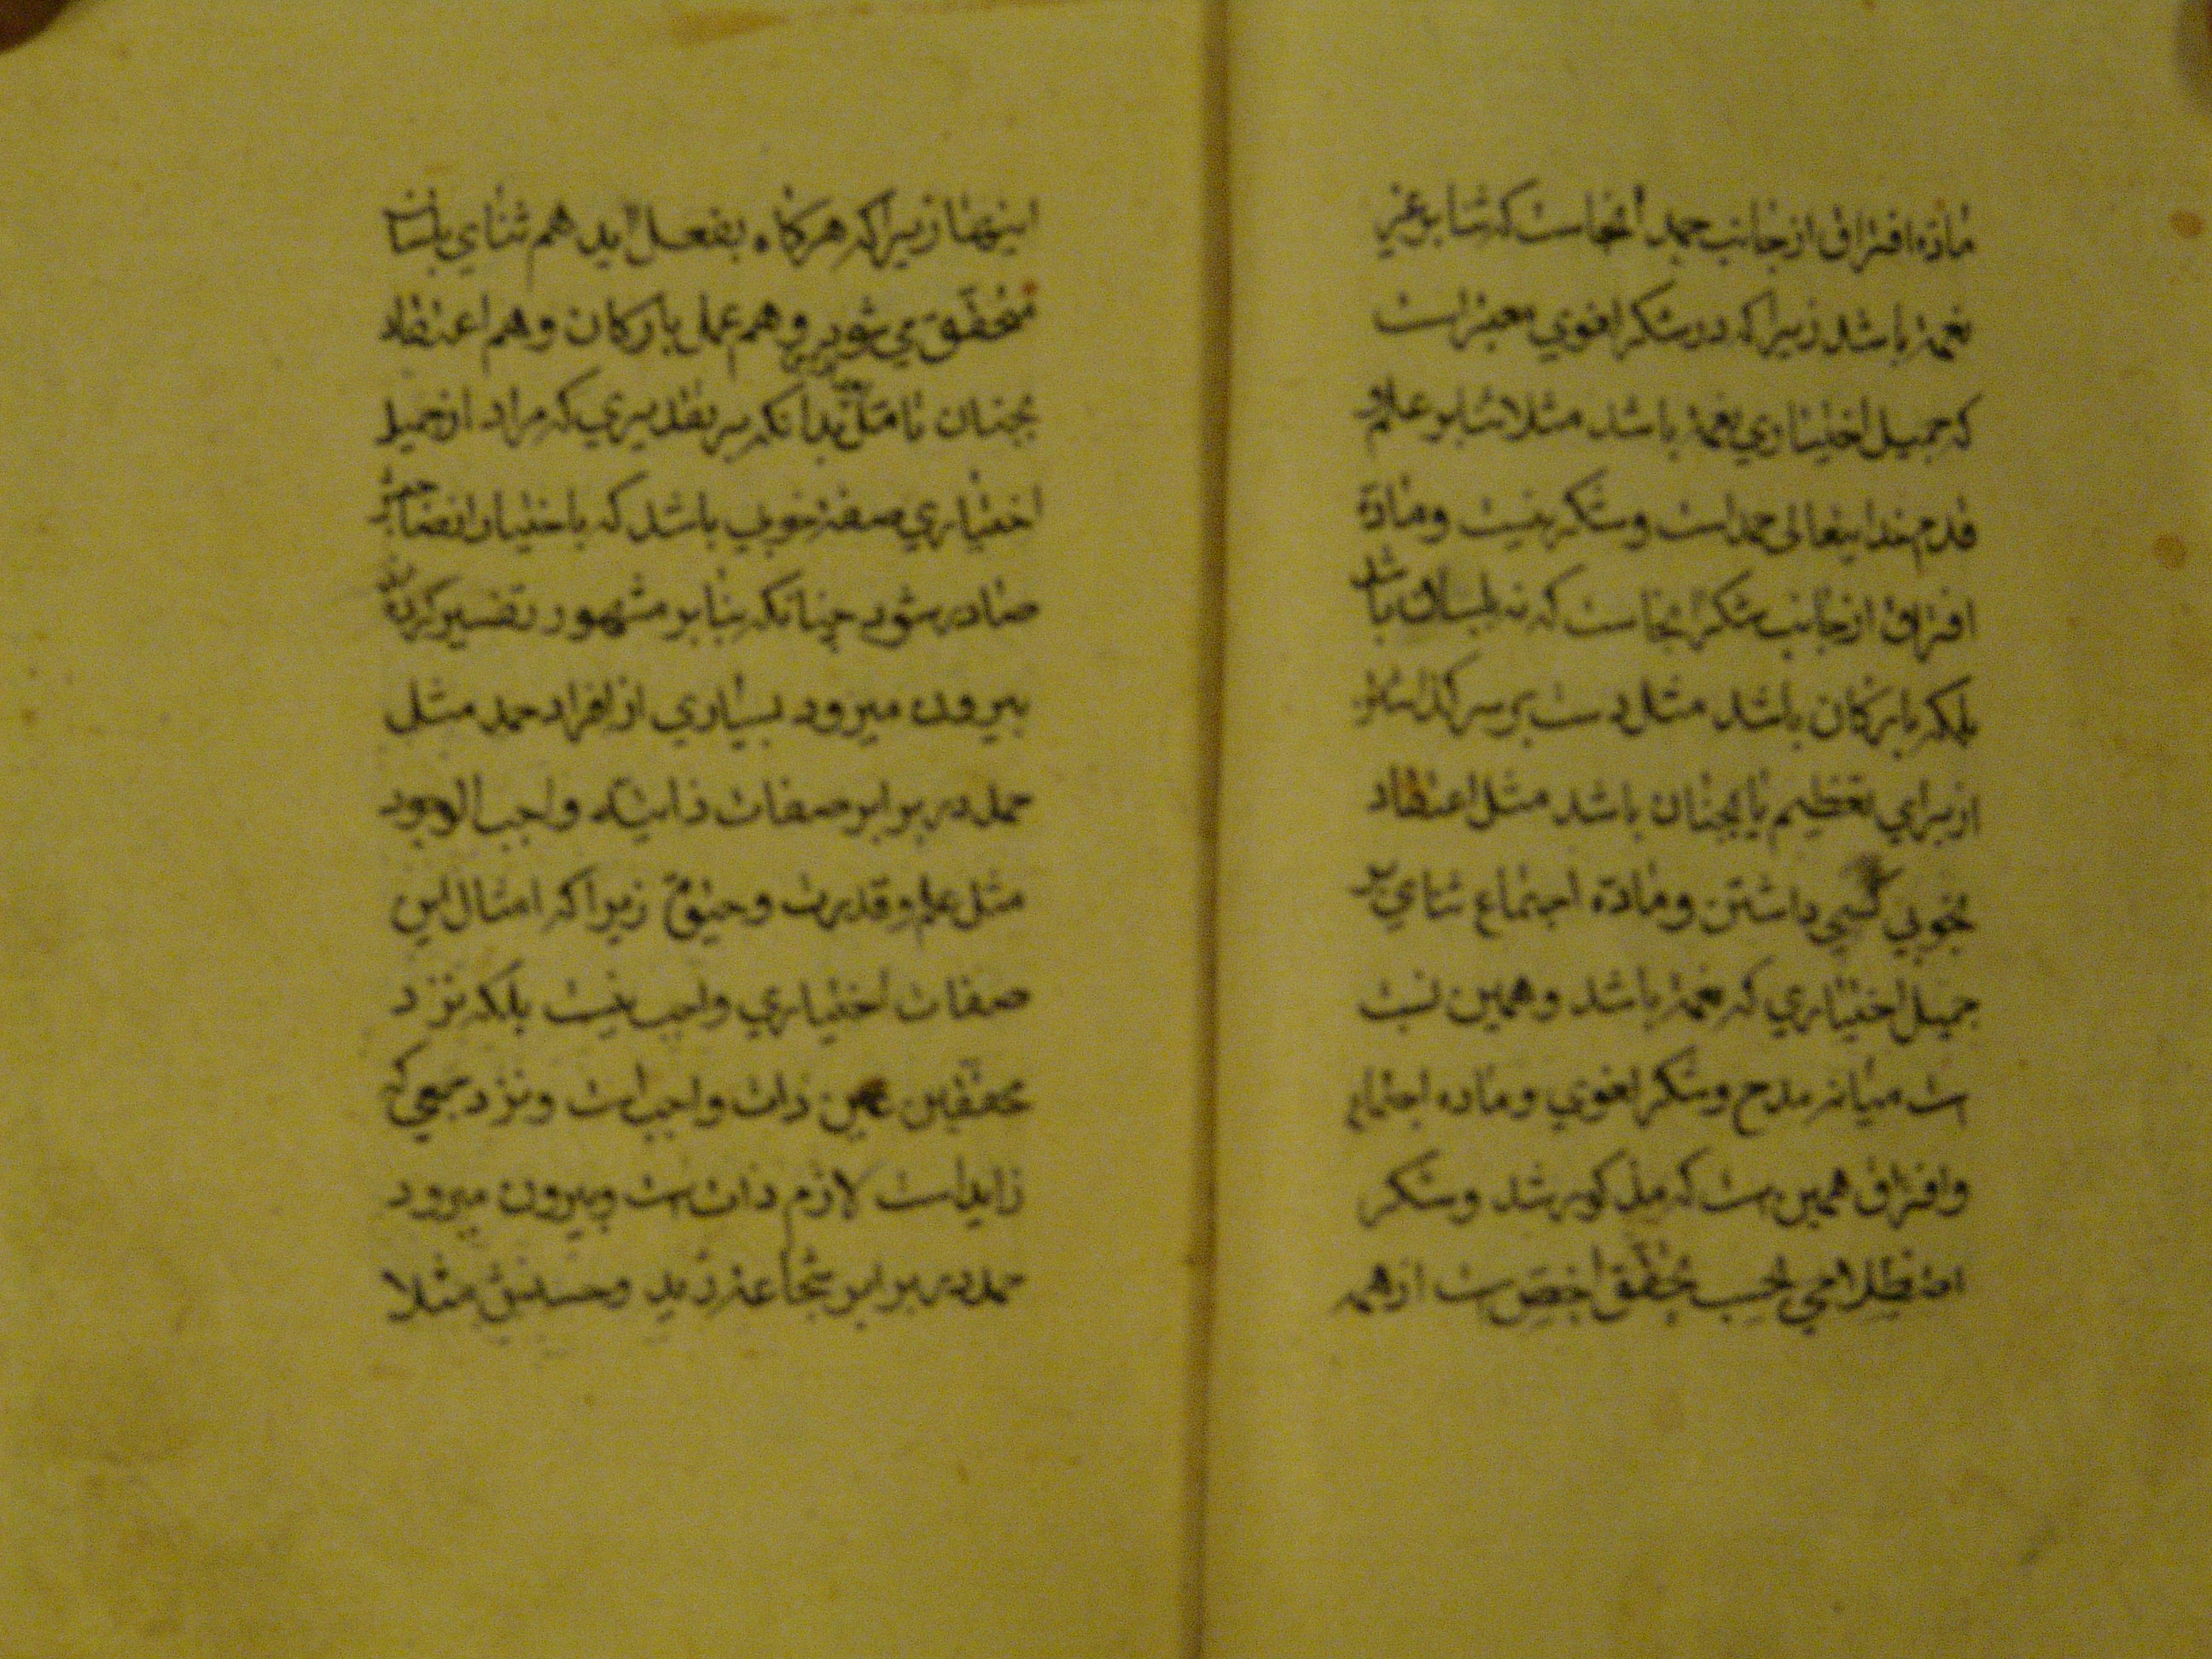 مادّه افتراق از جانب حمد آنجاست که ثنا بر غیر
نعمة باشد زیرا که در شکر لغوي معتبر است
که جمیل اختیاري نعمة باشد مثلا ثنا بر علم و
قدم خدایتعالی حمد است و شکر نیست و مادّة
افتراق از جانب شکر آنجاست که نه بلسان باشد
بلکه بارکان باشد مثل دست بر سر گذاشتن
از براي تعظیم یا بجنان باشد مثل اعتقاد
بخوبي کسي داشتن و مادّه اجتماع ثناي بر
جمیل اختیاري که نعمة باشد و همین نسبت
است میانه مدح و شکر لغوي و ماده اجتماع
و افتراق همین است که مذکور شد و شکر
اصطلاحي بحسب تحقّق اخصّ است از همه
اینها زیرا که هرکاه بفعل آید هم ثناي بلسان
متحقّق مي شود و هم عمل بارکان و هم اعتقاد
بجنان تامّل بدانکه بر تقدیري که مراد از جمیل
اختیاري صفة خوبي باشد که باختیار از صاحبش
صادر شود چنانکه بنابر مشهور تفسیر کرده اند
بیرون میرود بسیاري از افراد حمد مثل
حمد در برابر صفات ذاتیّه واجب الوجود
مثل علم و قدرت و حیوة زیرا که امثال این
صفات اختیاري واجب نیست بلکه نزد
محقّقین عین ذات واجب است و نزد جمعي که
زاید است لازم ذات است و بیرون میرود
حمد در برابر شجاعة زید و حسنش مثلا